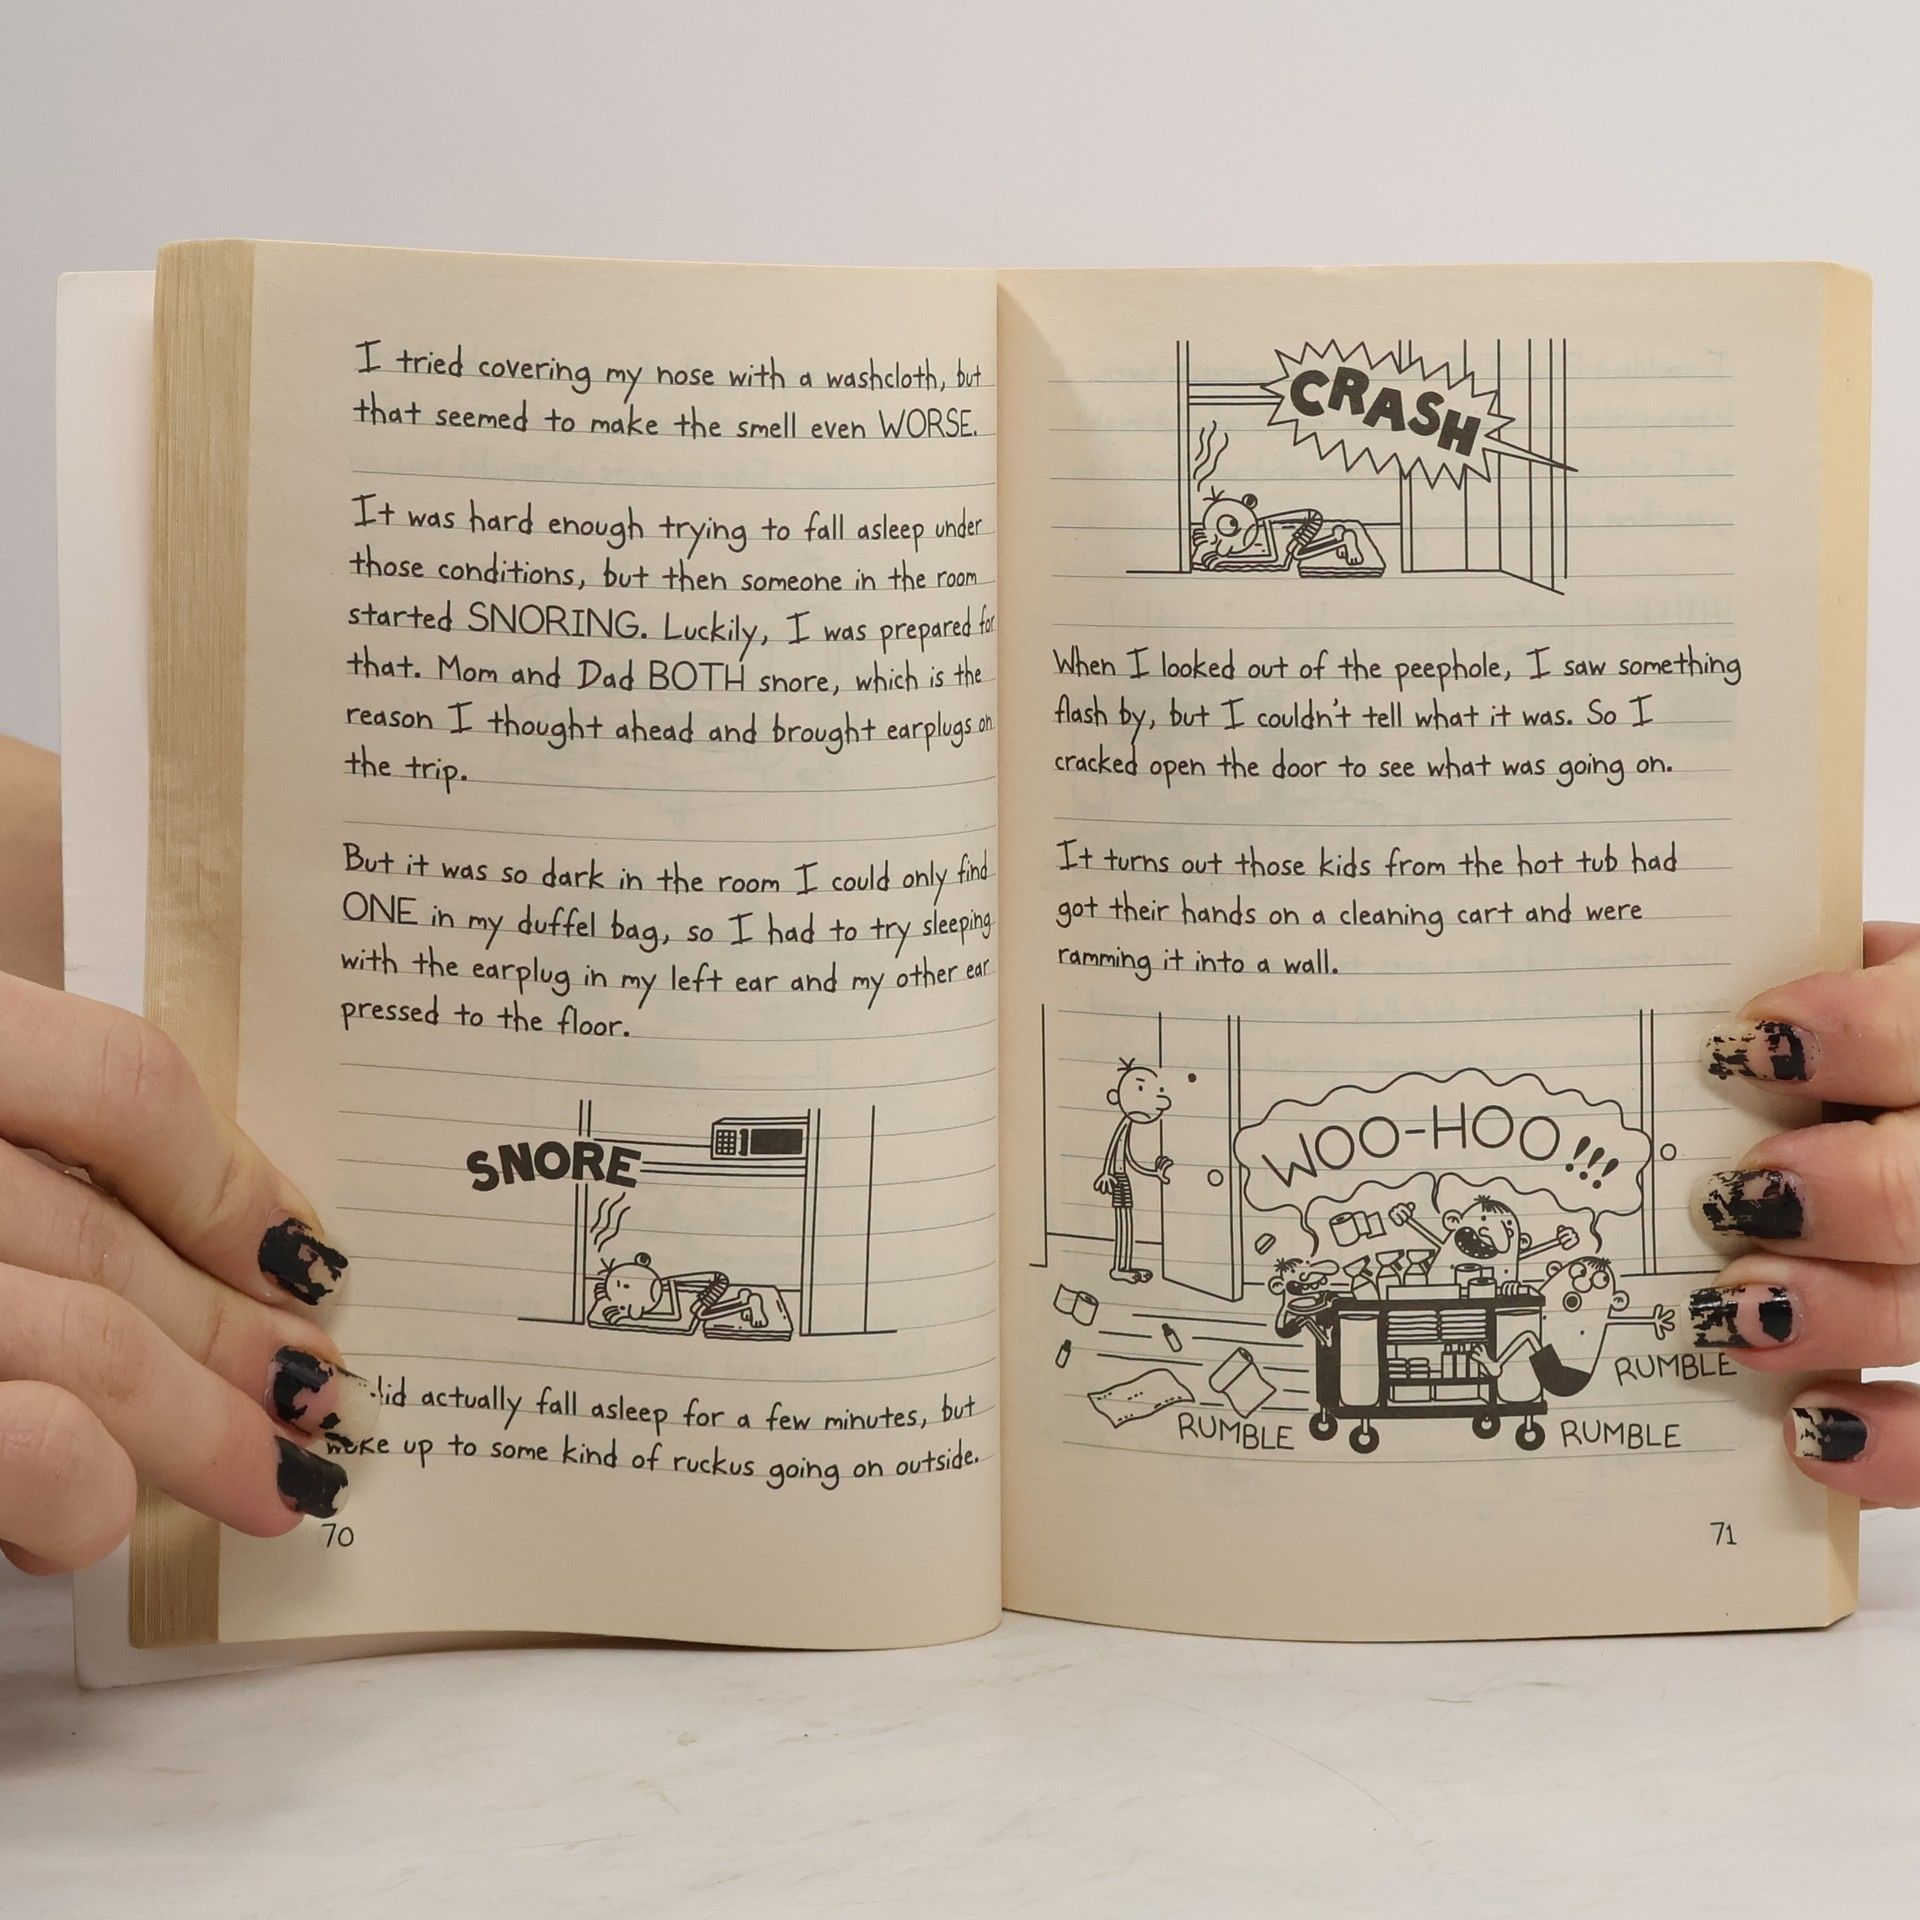 I tried covering my nose with a washcloth, but
that seemed to make the smell even WORSE.
It was hard enough trying to fall asleep under
those conditions, but then someone in the room
started SNORING. Luckily, I was prepared for
that. Mom and Dad BOTH snore, which is the
reason I thought ahead and brought earplugs on
the trip.
But it was so dark in the room I could only find
ONE in my duffel bag, so I had to try sleeping
with the earplug in my left ear and my other ear
pressed to the floor.
SNORE
actually fall asleep for a few minutes, but
up to some kind of ruckus going on outside.
70
CRASH
When I looked out of the peephole, I saw something
flash by, but I couldn't tell what it was. So I
cracked open the door to see what was going on.
It turns out those kids from the hot tub had
got their hands on a cleaning cart and were
ramming it into a wall.
WOO-HOO!!!
RUMBLE
RUMBLE
RUMBLE
71